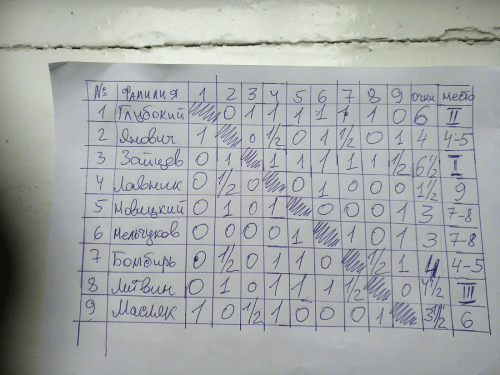 № ФАМИЛИЯ 1 2 3 4 5 6 7 8 9 очки место
1 Глубокий 0 1 1 1 1 1 1 0 6 II
2 Янович 1 0 1/2 0 1 1/2 0 1 4 4-5
3 Зайцев 0 1 1 1 1 1 1 1/2 6 1/2 I
4 Лавник 0 1/2 0 0 1 0 0 0 1 1/2 9
5 Новицкий 0 1 0 1 0 0 0 1 3 7-8
6 Мельчуков 0 0 0 0 1 1 0 1 3 7-8
7 Бомбирь 0 1/2 0 1 1 0 1/2 1 4 4-5
8 Литвин 0 1 0 1 1 1 1/2 0 4 1/2 III
9 Масляк 1 0 1/2 1 0 0 0 1 3 1/2 6